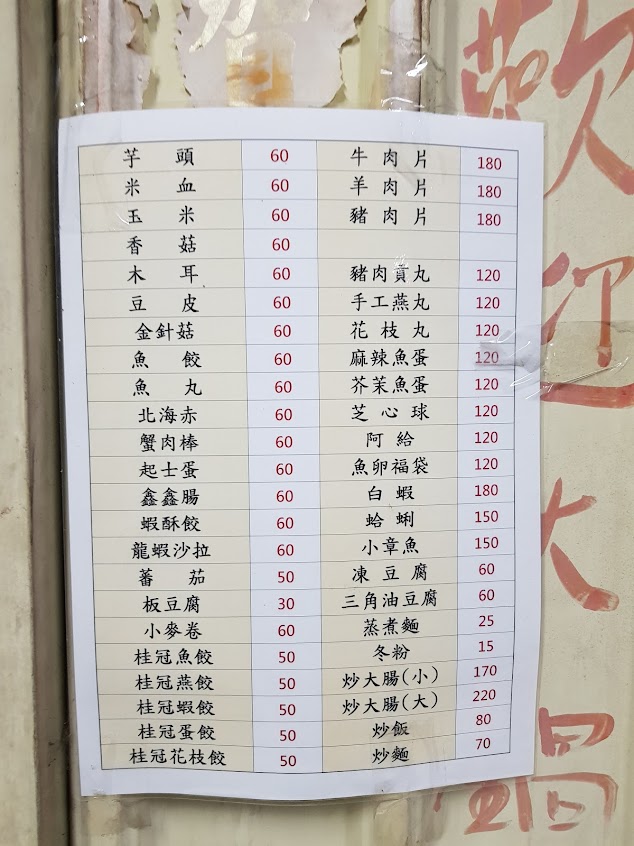 芋頭 60 牛肉片 180
米血 60 羊肉片 180
玉米 60 豬肉片 180
香菇 60
木耳 60 豬肉貢丸 120
豆皮 60 手工燕丸 120
金針菇 60 花枝丸 120
魚餃 60 麻辣魚蛋 120
魚丸 60 芥茉魚蛋 120
北海赤 60 芝心球 120
蟹肉棒 60 阿給 120
起士蛋 60 魚卵福袋 120
鑫鑫腸 60 白蝦 180
蝦酥餃 60 蛤蜊 150
龍蝦沙拉 60 小章魚 150
蕃茄 50 凍豆腐 60
板豆腐 30 三角油豆腐 60
小麥卷 60 蒸煮麵 25
桂冠魚餃 50 冬粉 15
桂冠燕餃 50 炒大腸(小) 170
桂冠蝦餃 50 炒大腸(大) 220
桂冠蛋餃 50 炒飯 80
桂冠花枝餃 50 炒麵 70
歡迎
火鍋